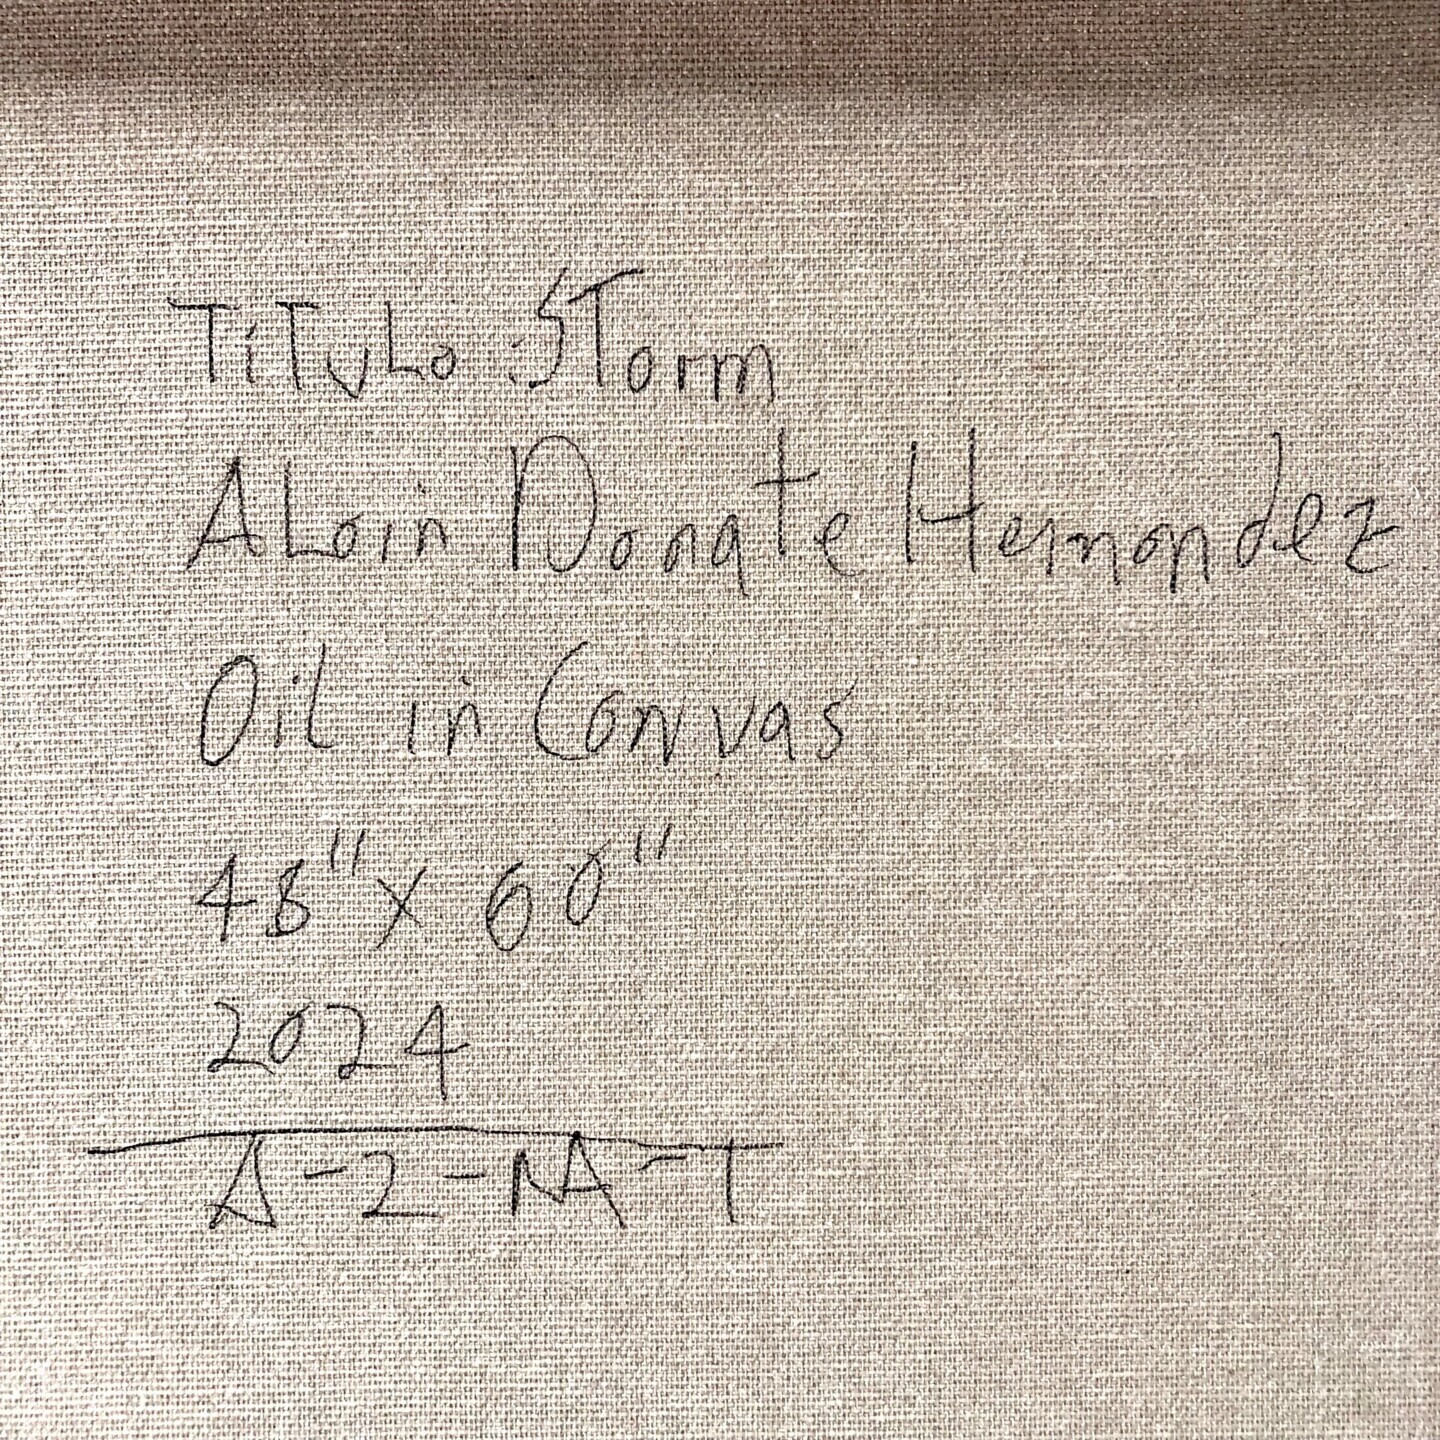 Titulo: Storm
Alain Donate Hernandez
Oil in Canvas
48" x 60"
2024
A-2-NA-T